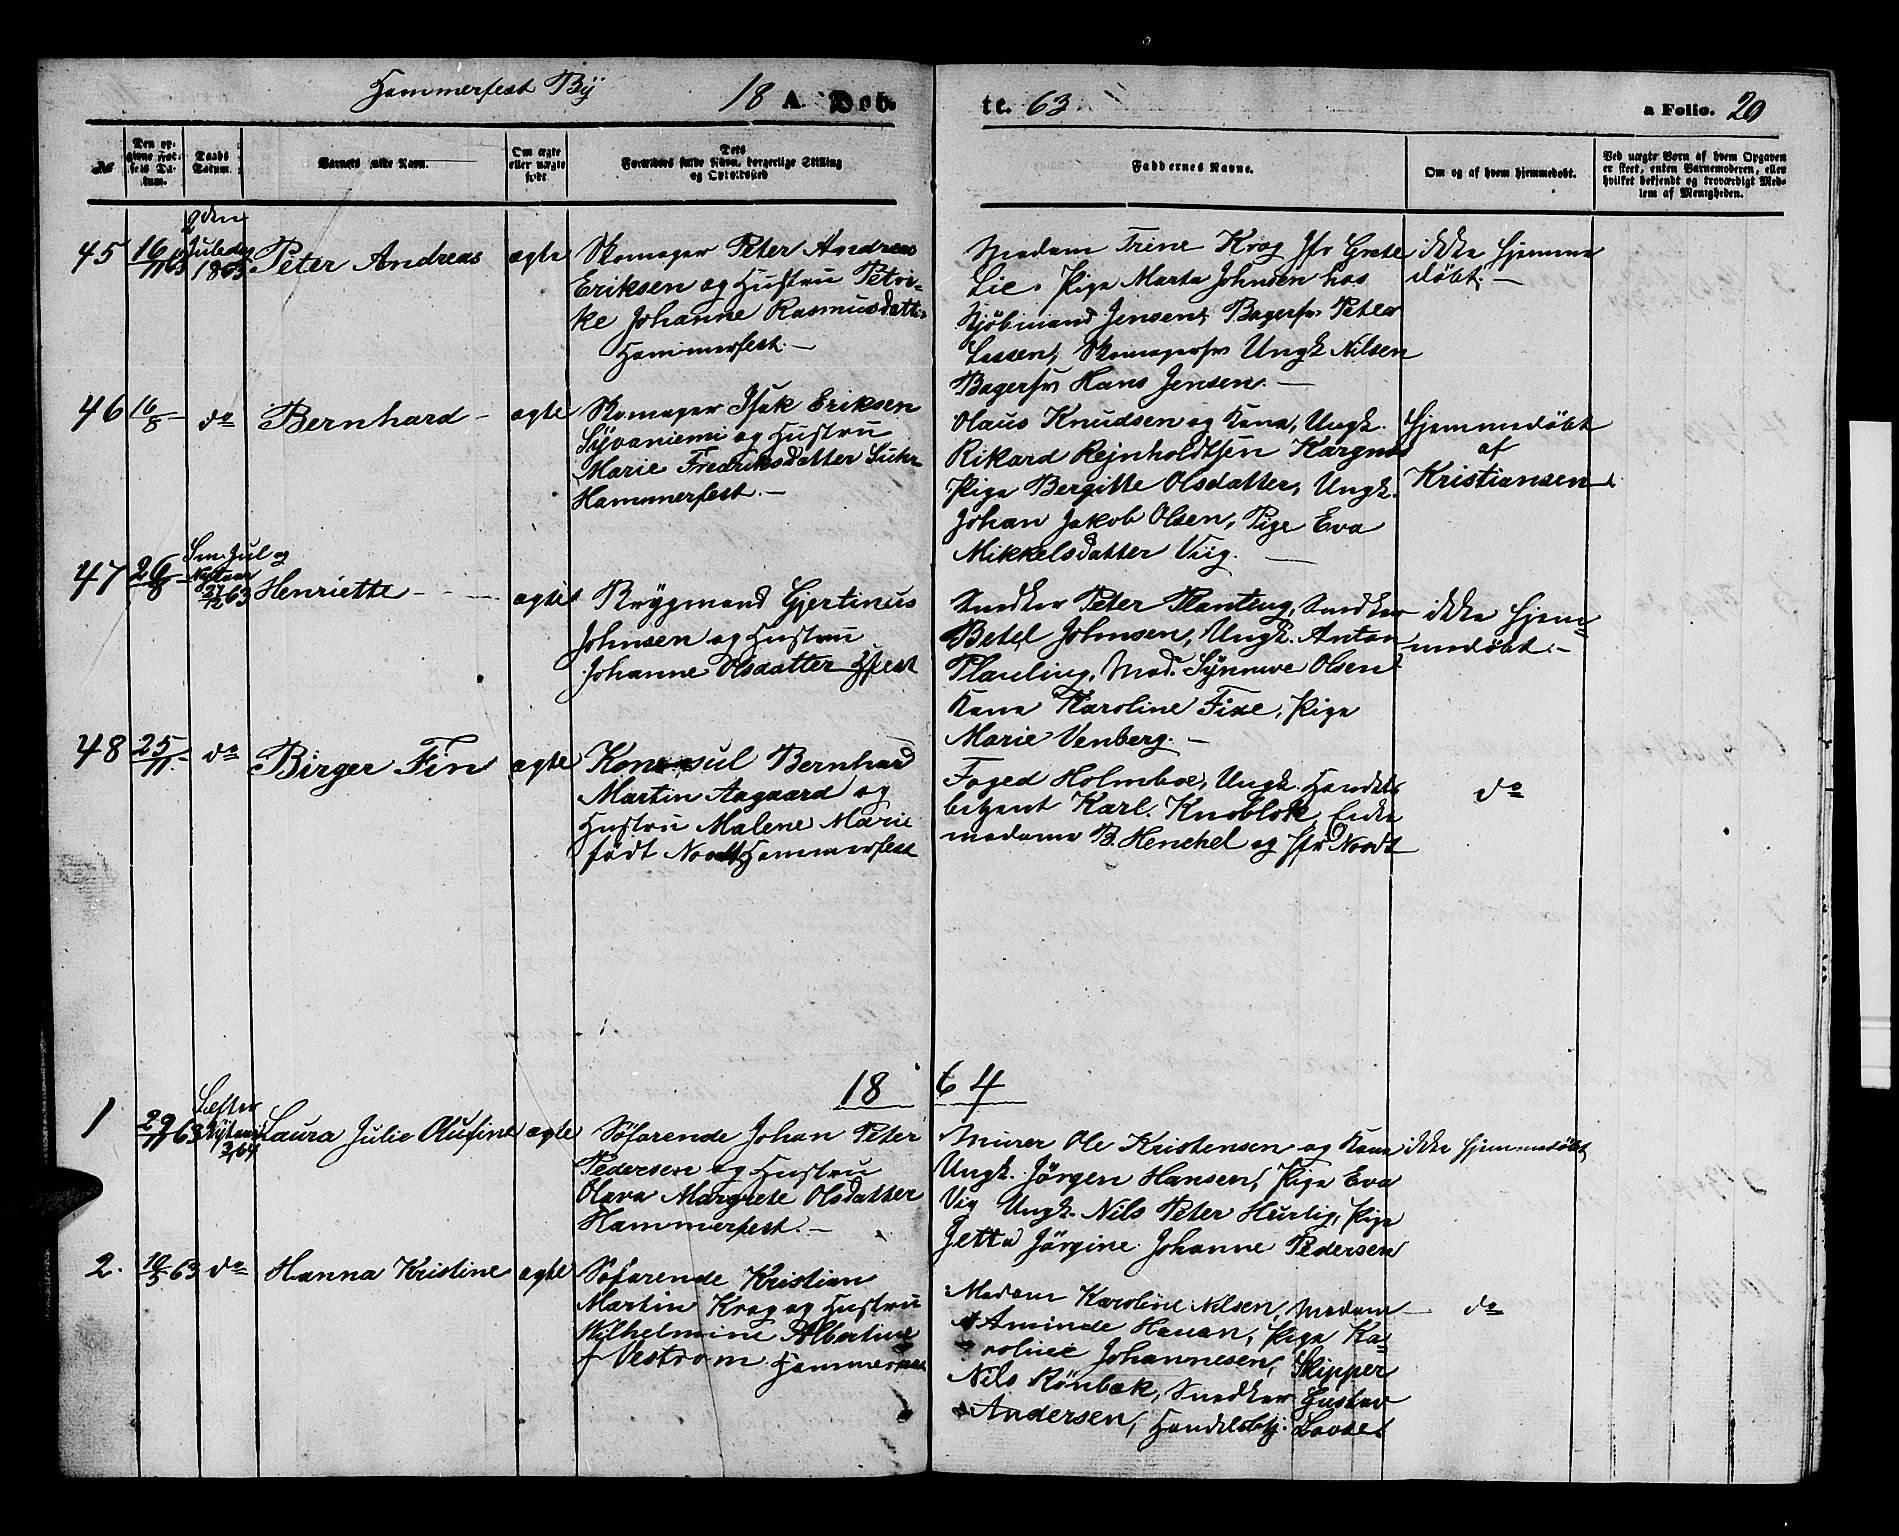 Hammerfest By
18 A. Døb-
te. 63.
a Folio. 20
No
Den opgivne Fødsels Datum.
Daabs Datum.
Barnets fulde Navn.
Om ægte eller uægte født.
Dets Forældres fulde Navn, borgerlige Stilling og Opholdssted
Faddernes Navne.
Om og af hvem hjemmedøbt.
Ved uægte Born af hvem Opgaven er skeet, enten Barnemoderen, eller hvilket bekjendt og troværdigt Medlem af Menigheden.
45
16/11 63
2den Juledag 1863
Peter Andreas
ægte
Skomager Peter Andreas
Eriksen og Hustru Petri-
ke Johanne Rasmusdatter
Hammerfest. —
Madam Trine Krog Jfr Grete
Lie, Pige Marta Johnsen hos
Kjöbmand Jensen, Bagersv Peter
Lassen, Skomagersv Ungk Nilsen
Bagersv Hans Jensen. —
ikke hjemme
döbt. —
46
16/8
do
Bernhard -
ægte
Skomager Isak Eriksen
Syvaniemi og Hustru
Marie Fredriksdatter Suhr
Hammerfest. —
Olaus Knudsen og Kona, Ungk.
Rikard Rejnholdtsen Kargnes
Pige Bergitte Olsdatter, Ungk.
Johan Jakob Olsen, Pige Eva
Mikkelsdatter Viig. —
Hjemmedöbt
af
Kristiansen
47
26/8
S m Jul og
Nytaar
27/12 63
Henriette -
ægte
Brygmand Gjertinus
Johnsen og Hustru
Johanne Olsdatter Hfest
Snedker Peter Planting, Snedker
Betel Johnsen, Ungk. Anton
Planting, Mad. Synnove Olsen
Kona Karoline Fixe, Pige
Marie Venberg. —
ikke hjem-
medöbt. —
48
25/11.
do
Birger Fin
ægte
Konsul Bernhard
Martin Aagaard og
Hustru Malene Marie
födt Noodt Hammerfest
Foged Holmboe, Ungk. Handels
betjent Karl. Knoblok, Enke
madame B. Henchel og Jfr Noodt
do
18 64
1
29/11 63
S. efter
Nytaar
3/1 64
Laura Julie Olufine
ægte
Söfarende Johan Peter
Pedersen og Hustru
Olava Margrete Olsdatter
Hammerfest. —
Murer Ole Kristensen og Kona
Ungk. Jörgen Hansen, Pige Eva
Vig Ungk. Nils Peter Hurtig, Pige
Jetta Jörgine Johanne Pedersen
ikke hjemmedöbt
2.
63
do
Hanna Kristine
ægte
Söfarende Kristian
Martin Krog og Hustru
Wilhelmine Albertine
f Vestrom. Hammerfest
Madam Karoline Nilsen, Madam
Aminde Hauan, Pige Ka-
roline Johannesen, Skipper
Nils Rönbek, Snedker Gustav
Andersen, Handelsbtj.
do